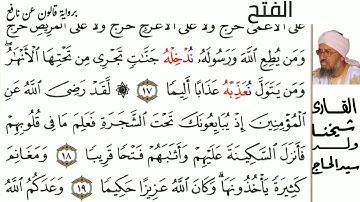 الفتح
برواية قالون عن نافع
على الأعمى حرج ولا على الأعرج حرج ولا على المريض حرج
وَمَن يُطِعِ اللَّهَ وَرَسُولَهُۥ نُدْخِلْهُ جَنَّاتٍ تَجْرِى مِن تَحْتِهَا الْأَنْهَٰرُ
وَمَن يَتَوَلَّ نُعَذِّبْهُ عَذَابًا أَلِيمًا ١٧ لَّقَدْ رَضِىَ اللَّهُ عَنِ
الْمُؤْمِنِينَ إِذْ يُبَايِعُونَكَ تَحْتَ الشَّجَرَةِ فَعَلِمَ مَا فِى قُلُوبِهِمْ
فَأَنزَلَ السَّكِينَةَ عَلَيْهِمْ وَأَثَٰبَهُمْ فَتْحًا قَرِيبًا ١٨ وَمَغَانِمَ
كَثِيرَةً يَأْخُذُونَهَا وَكَانَ اللَّهُ عَزِيزًا حَكِيمًا ١٩ وَعَدَكُمُ اللَّهُ
القارئ
شيخنا
ولد
سيد الحاج